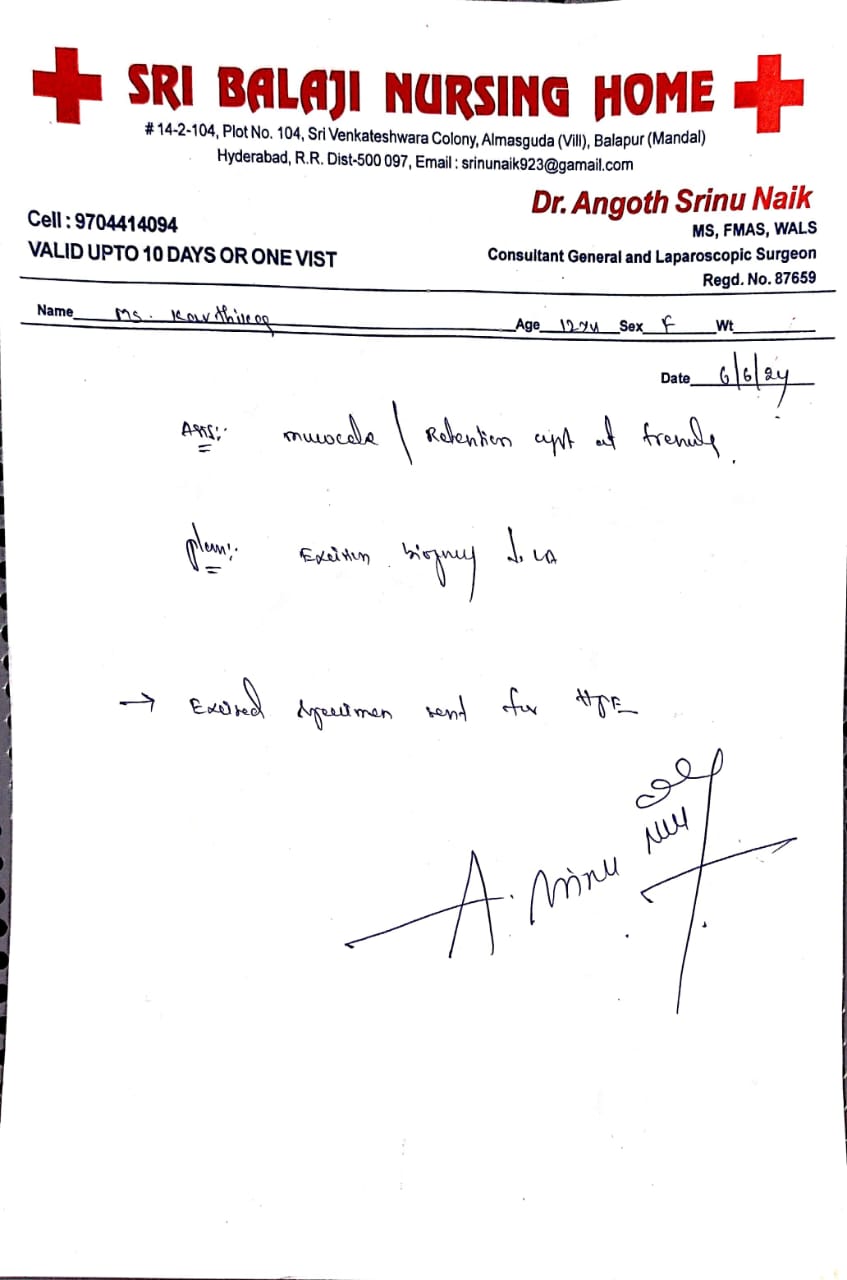 SRI BALAJI NURSING HOME
# 14-2-104, Plot No. 104, Sri Venkateshwara Colony, Almasguda (Vill), Balapur (Mandal)
Hyderabad, R.R. Dist-500 097, Email : srinunaik923@gamail.com
Dr. Angoth Srinu Naik
MS, FMAS, WALS
Consultant General and Laparoscopic Surgeon
Regd. No. 87659
Cell : 9704414094
VALID UPTO 10 DAYS OR ONE VIST
Name Ms. Age Sex F Wt
Date 6/6/24
mucocele / Retention cyst at
plan:- Excision biopsy LA
→ Excised specimen sent for HPE
A. Srinu